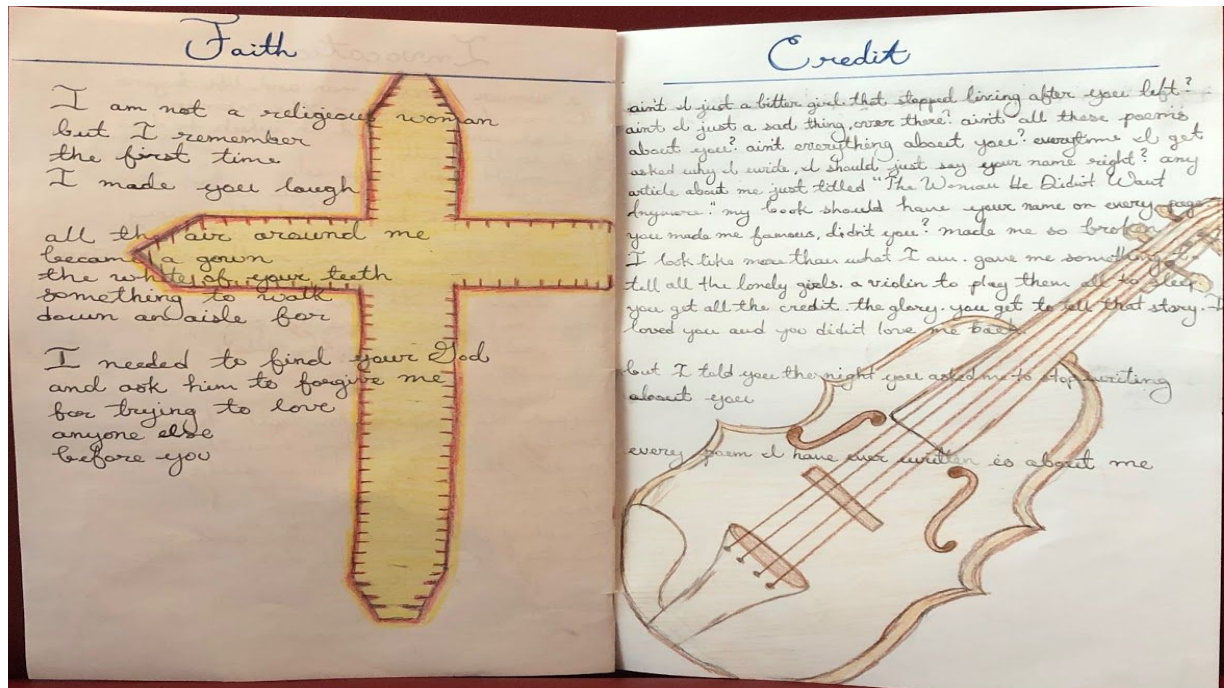 Faith
I am not a religious woman
but I remember
the first time
I made you laugh
all the air around me
became a gown
the white of your teeth
something to walk
down an aisle for
I needed to find your God
and ask him to forgive me
for trying to love
anyone else
before you
Credit
aint I just a bitter girl that stopped living after you left?
aint I just a sad thing, over there? aint all these poems
about you? aint everything about you? everytime I get
asked why I write, I should just say your name right? any
article about me just titled "The Woman He Didn't Want
Anymore." my book should have your name on every page
you made me famous, didn't you? made me so broken
I look like more than what I am. gave me something t
tell all the lonely girls. a violin to play them all to sleep
you get all the credit. the glory. you get to tell that story. I
loved you and you didn't love me back.
but I told you the night you asked me to stop writing
about you
every poem I have ever written is about me